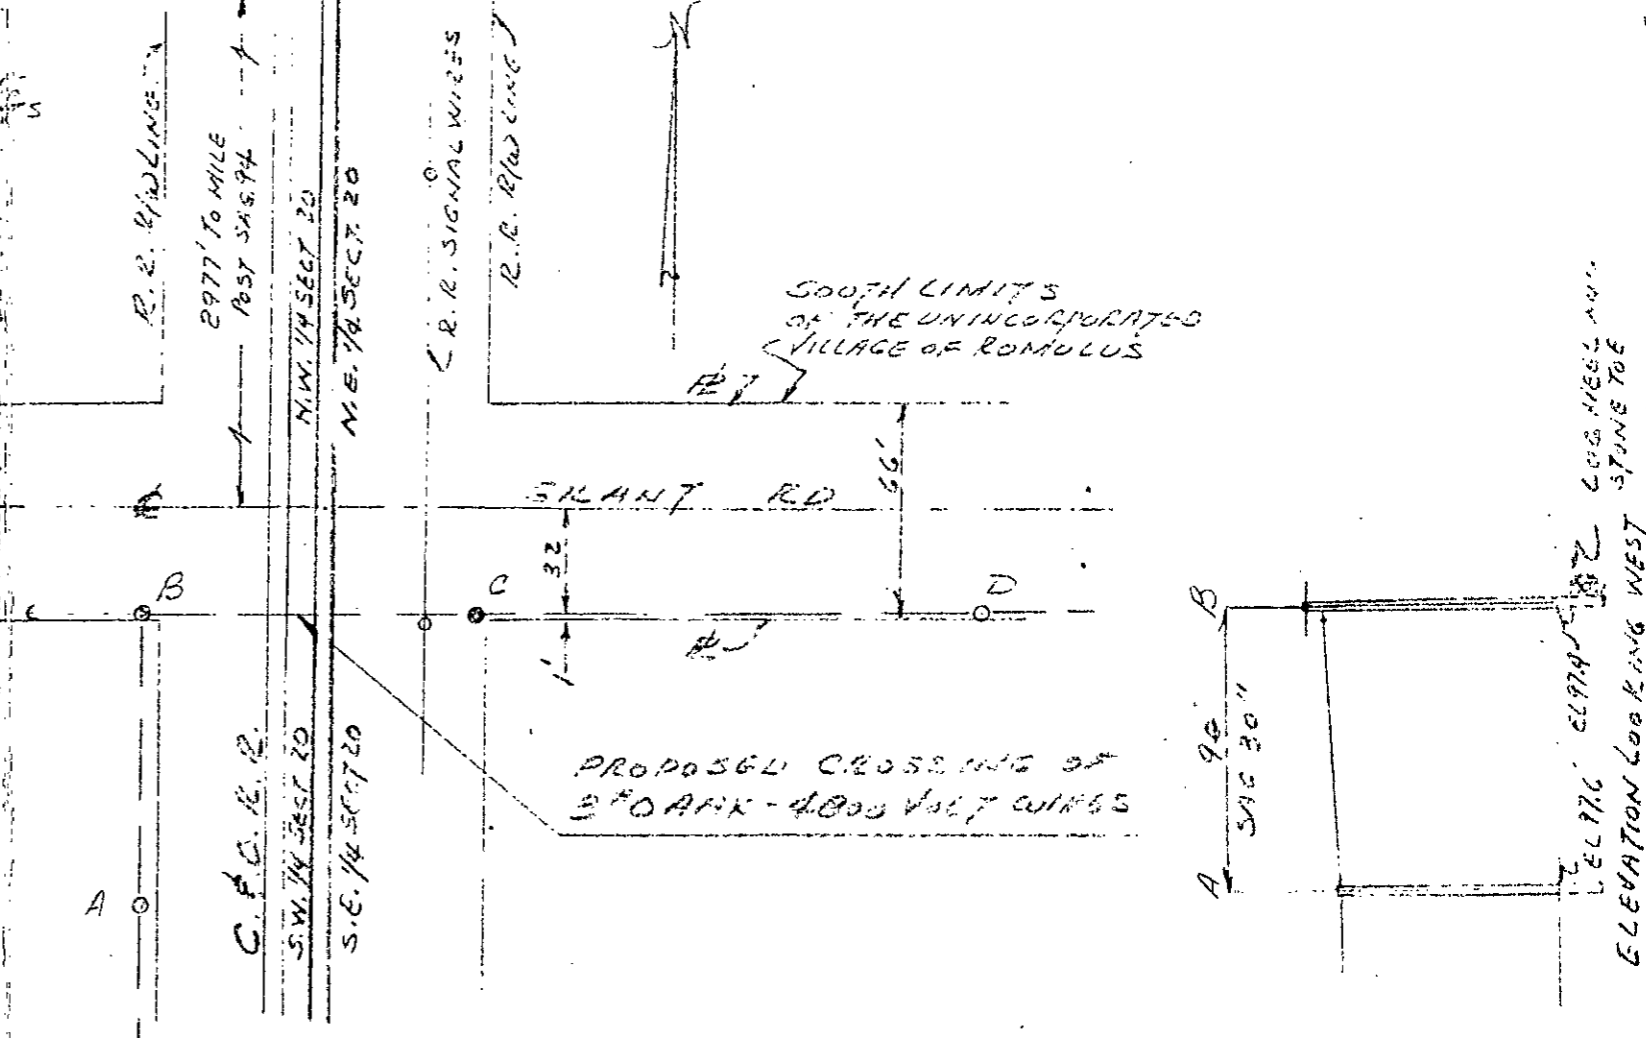 R.R. R/W LINE
2977' TO MILE
POST
N.W. 1/4 SECT 20
N.E. 1/4 SECT. 20
R.R. SIGNAL WIRES
R.R. R/W LINE
N
SOUTH LIMITS
OF THE UNINCORPORATED
VILLAGE OF ROMULUS
66'
RD
32
1'
B
C
D
A
C. & O. R.R.
S.W. 1/4 SECT 20
S.E. 1/4 SECT 20
PROPOSED CROSSING OF
4800 VOLT WIRES
B
96
SAG 30"
A
EL 97.6'
STONE TOE
ELEVATION LOOKING WEST